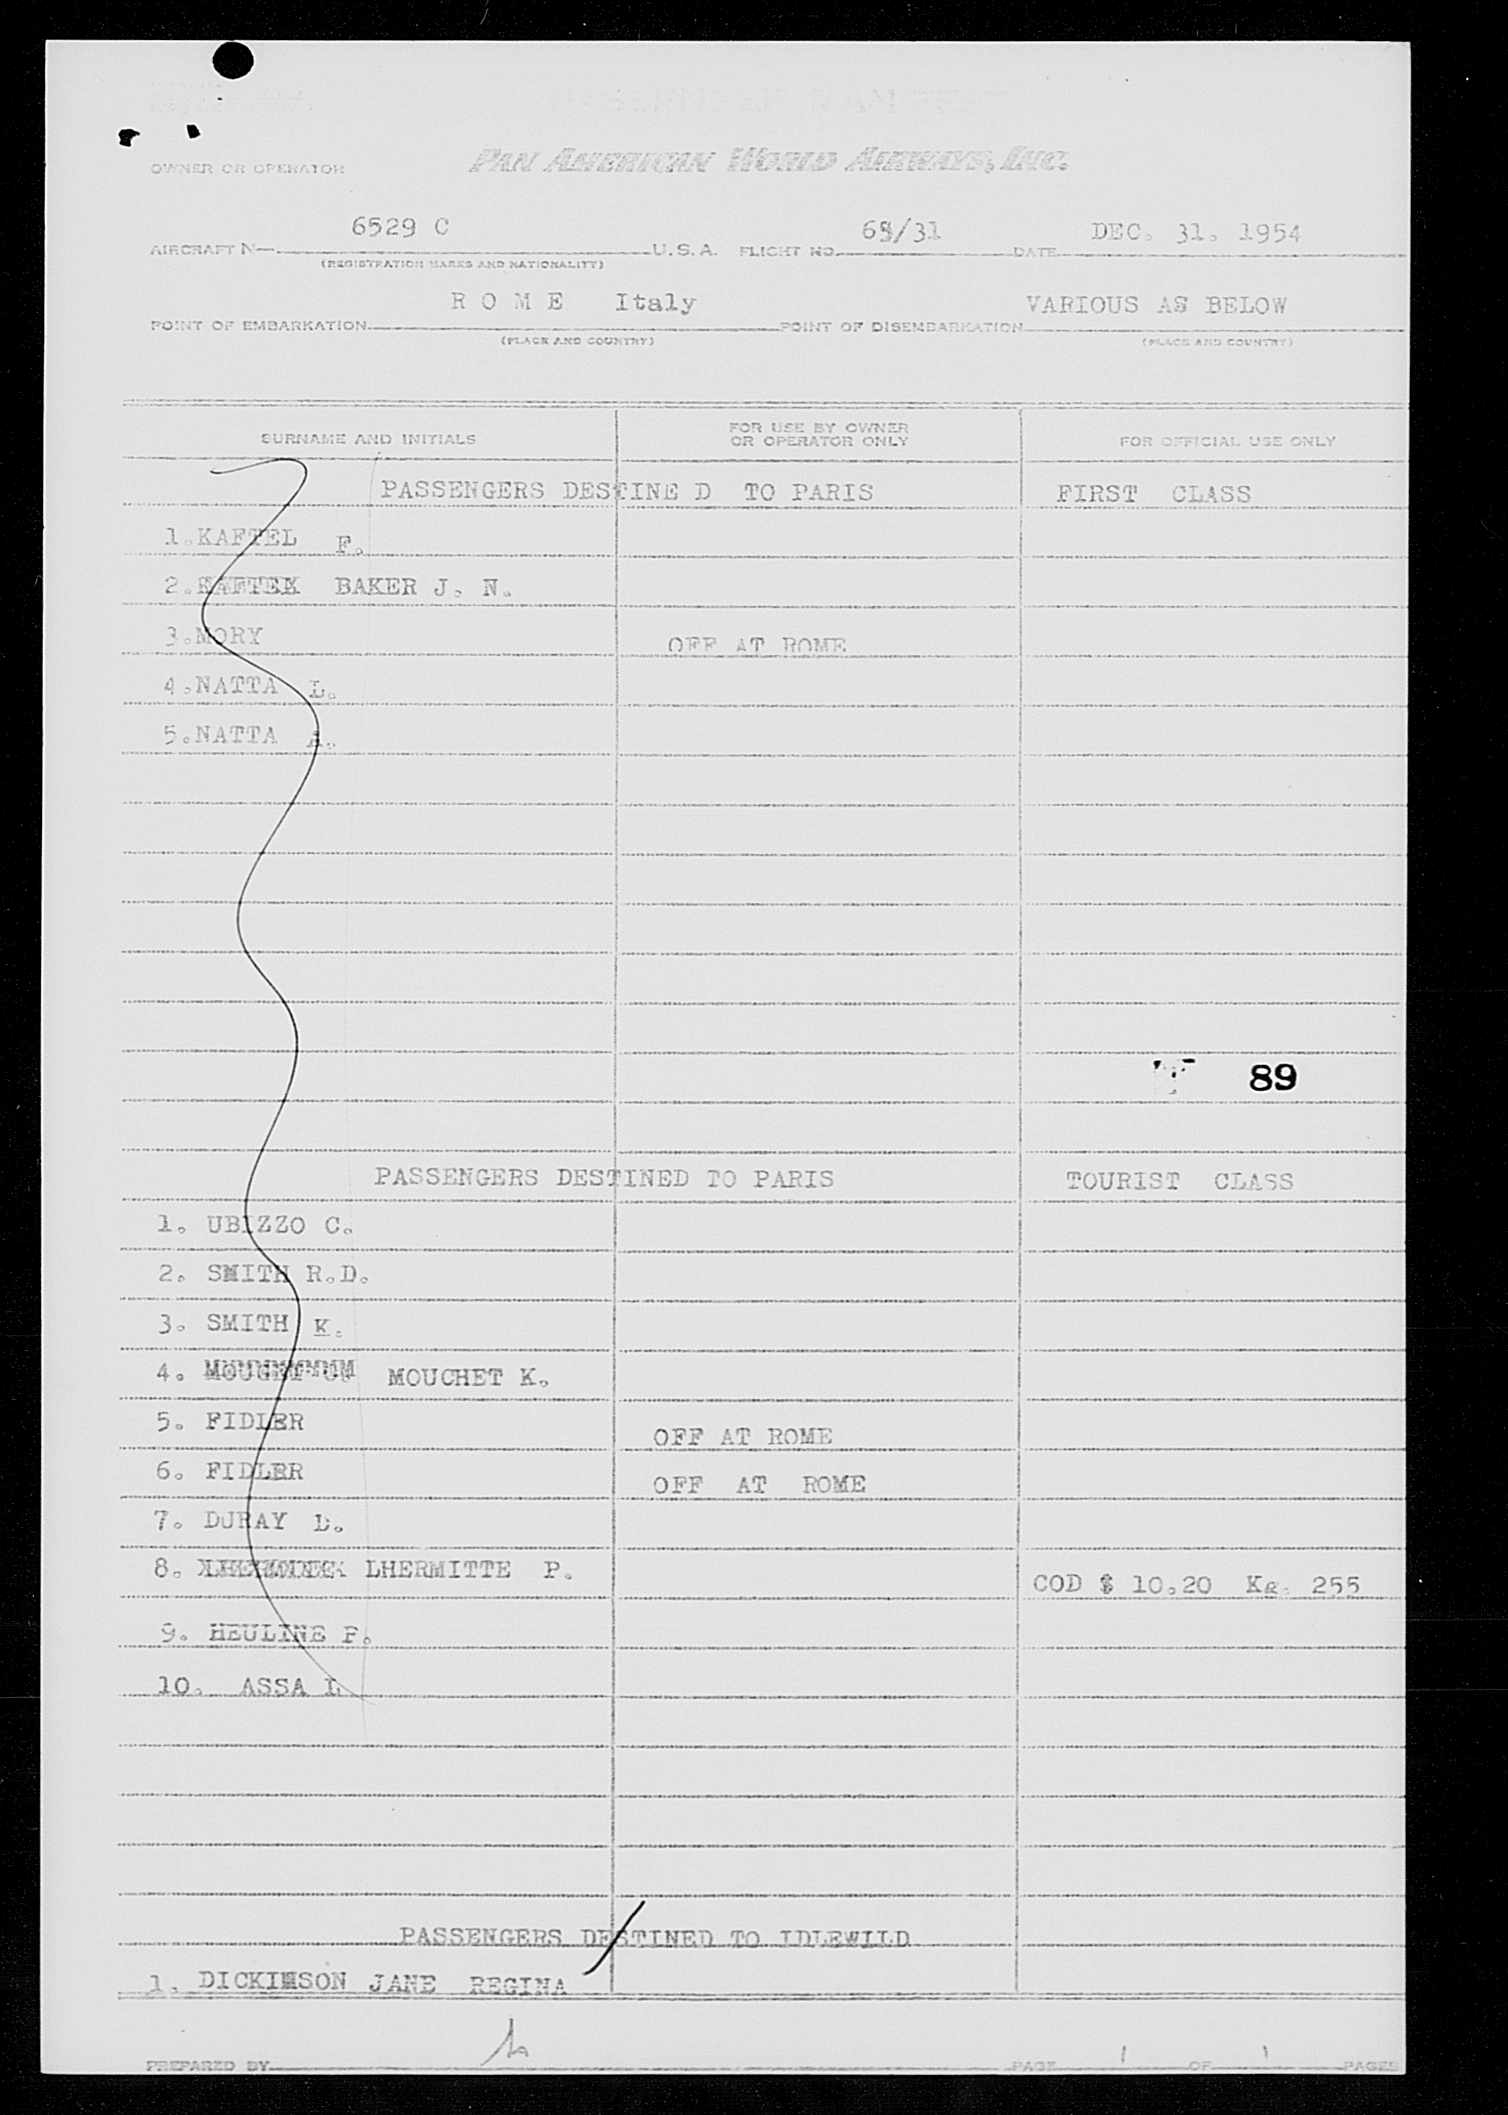 OWNER OR OPERATOR PAN AMERICAN WORLD AIRWAYS, INC.
6529 C 68/31 DEC. 31. 1954
AIRCRAFT N— U.S.A. FLIGHT NO. DATE
(REGISTRATION MARKS AND NATIONALITY)
R O M E Italy VARIOUS AS BELOW
POINT OF EMBARKATION POINT OF DISEMBARKATION
(PLACE AND COUNTRY) (PLACE AND COUNTRY)
SURNAME AND INITIALS FOR USE BY OWNER OR OPERATOR ONLY FOR OFFICIAL USE ONLY
PASSENGERS DESTINE D TO PARIS FIRST CLASS
1.KAFTEL F.
2.KAFTEK BAKER J. N.
3.MORY OFF AT ROME
4.NATTA L.
5.NATTA A.
89
PASSENGERS DESTINED TO PARIS TOURIST CLASS
1. UBIZZO C.
2. SMITH R.D.
3. SMITH K.
4. MOUCHET K.
5. FIDLER OFF AT ROME
6. FIDLER OFF AT ROME
7. DURAY D.
8. LHERMITTE P.
COD $ 10.20 Kg. 255
9. HEULINE F.
10. ASSA L
PASSENGERS DESTINED TO IDLEWILD
1. DICKINSON JANE REGINA
PREPARED BY PAGE 1 OF 1 PAGES